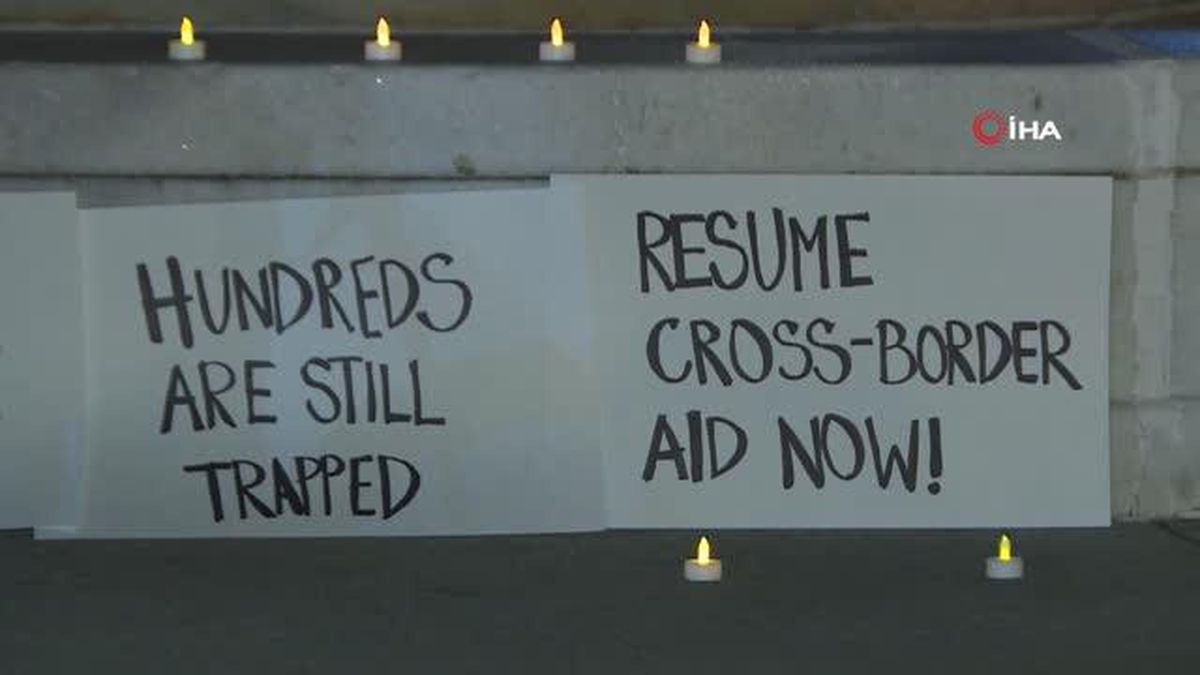 İHA
HUNDREDS
ARE STILL
TRAPPED
RESUME
CROSS-BORDER
AID NOW!